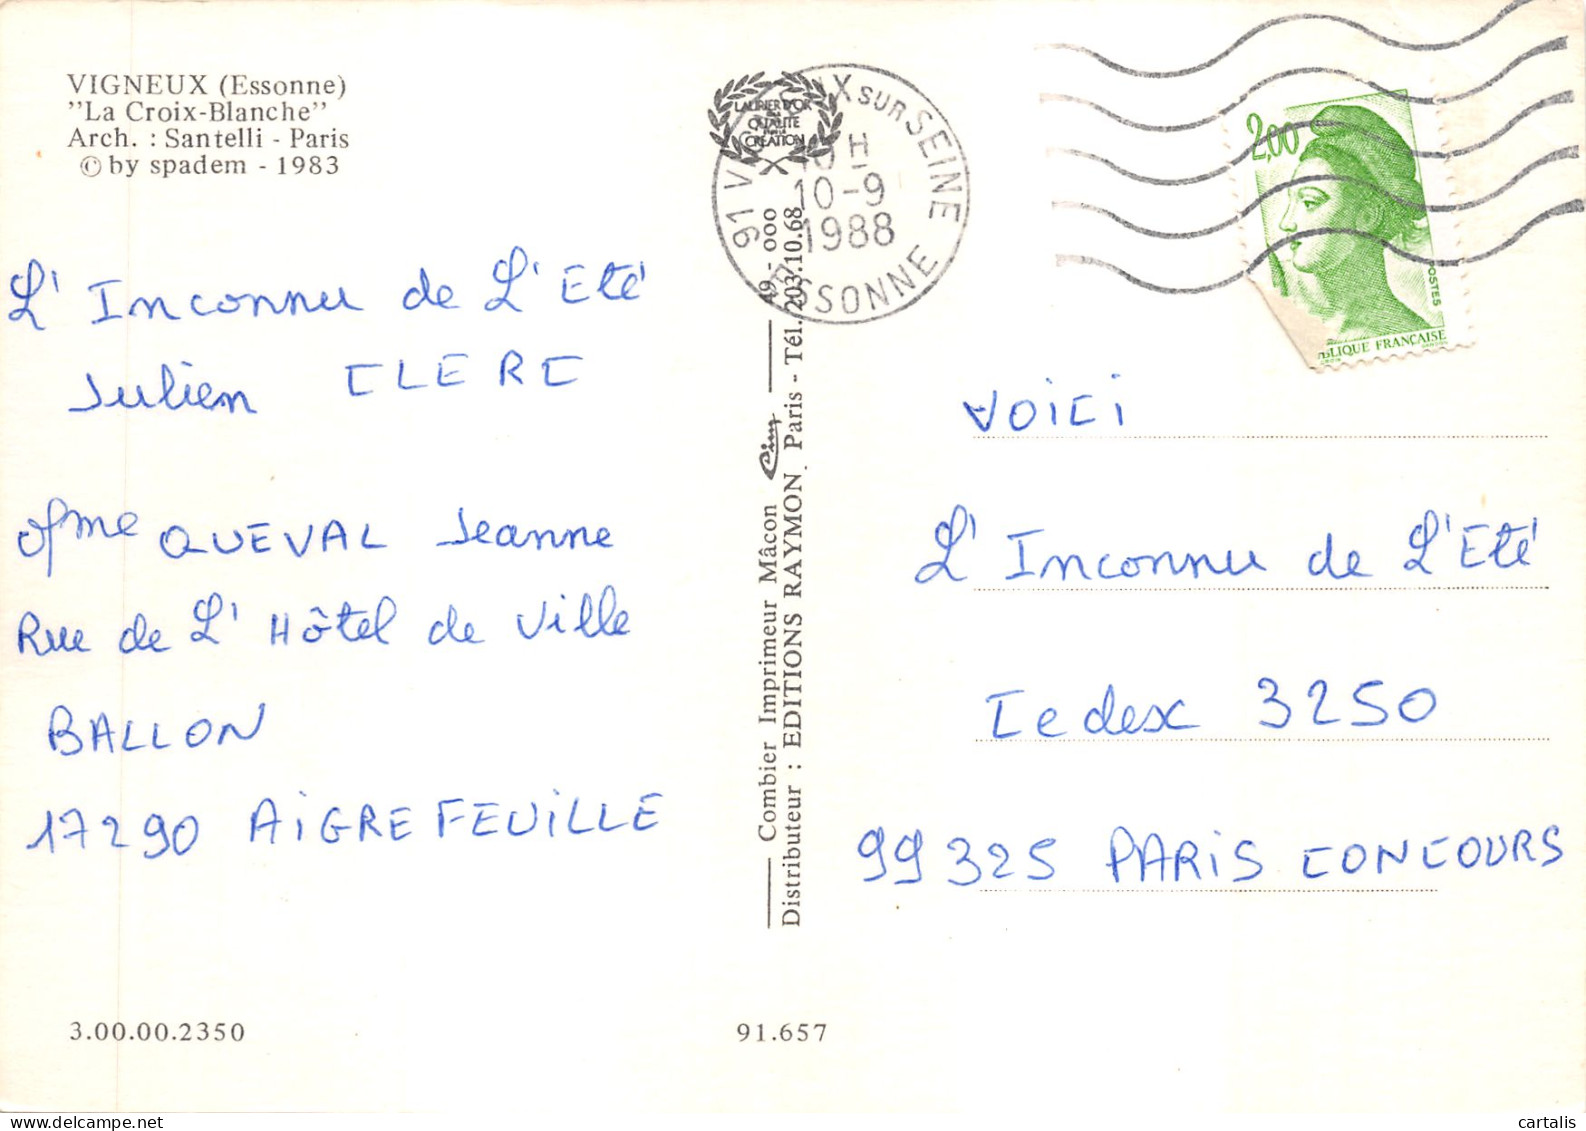 VIGNEUX (Essonne)
"La Croix-Blanche"
Arch. : Santelli - Paris
© by spadem - 1983
L' Inconnu de L' Eté
Julien CLERC
Mme QUEVAL Jeanne
Rue de L' Hôtel de Ville
BALLON
17290 AIGREFEUILLE
3.00.00.2350
LAURIER D'OR
DE LA
QUALITE
CREATION
Combier Imprimeur Mâcon Cim 49 - 000
Distributeur : EDITIONS RAYMON, Paris - Tél. 203.10.68
91.657
91 VIGNEUX SUR SEINE
10H
10-9
1988
ESSONNE
2,00
POSTES
BLIQUE FRANÇAISE
VOICI
L' Inconnu de L'Eté
Cedex 3250
99325 PARIS CONCOURS
cartalis